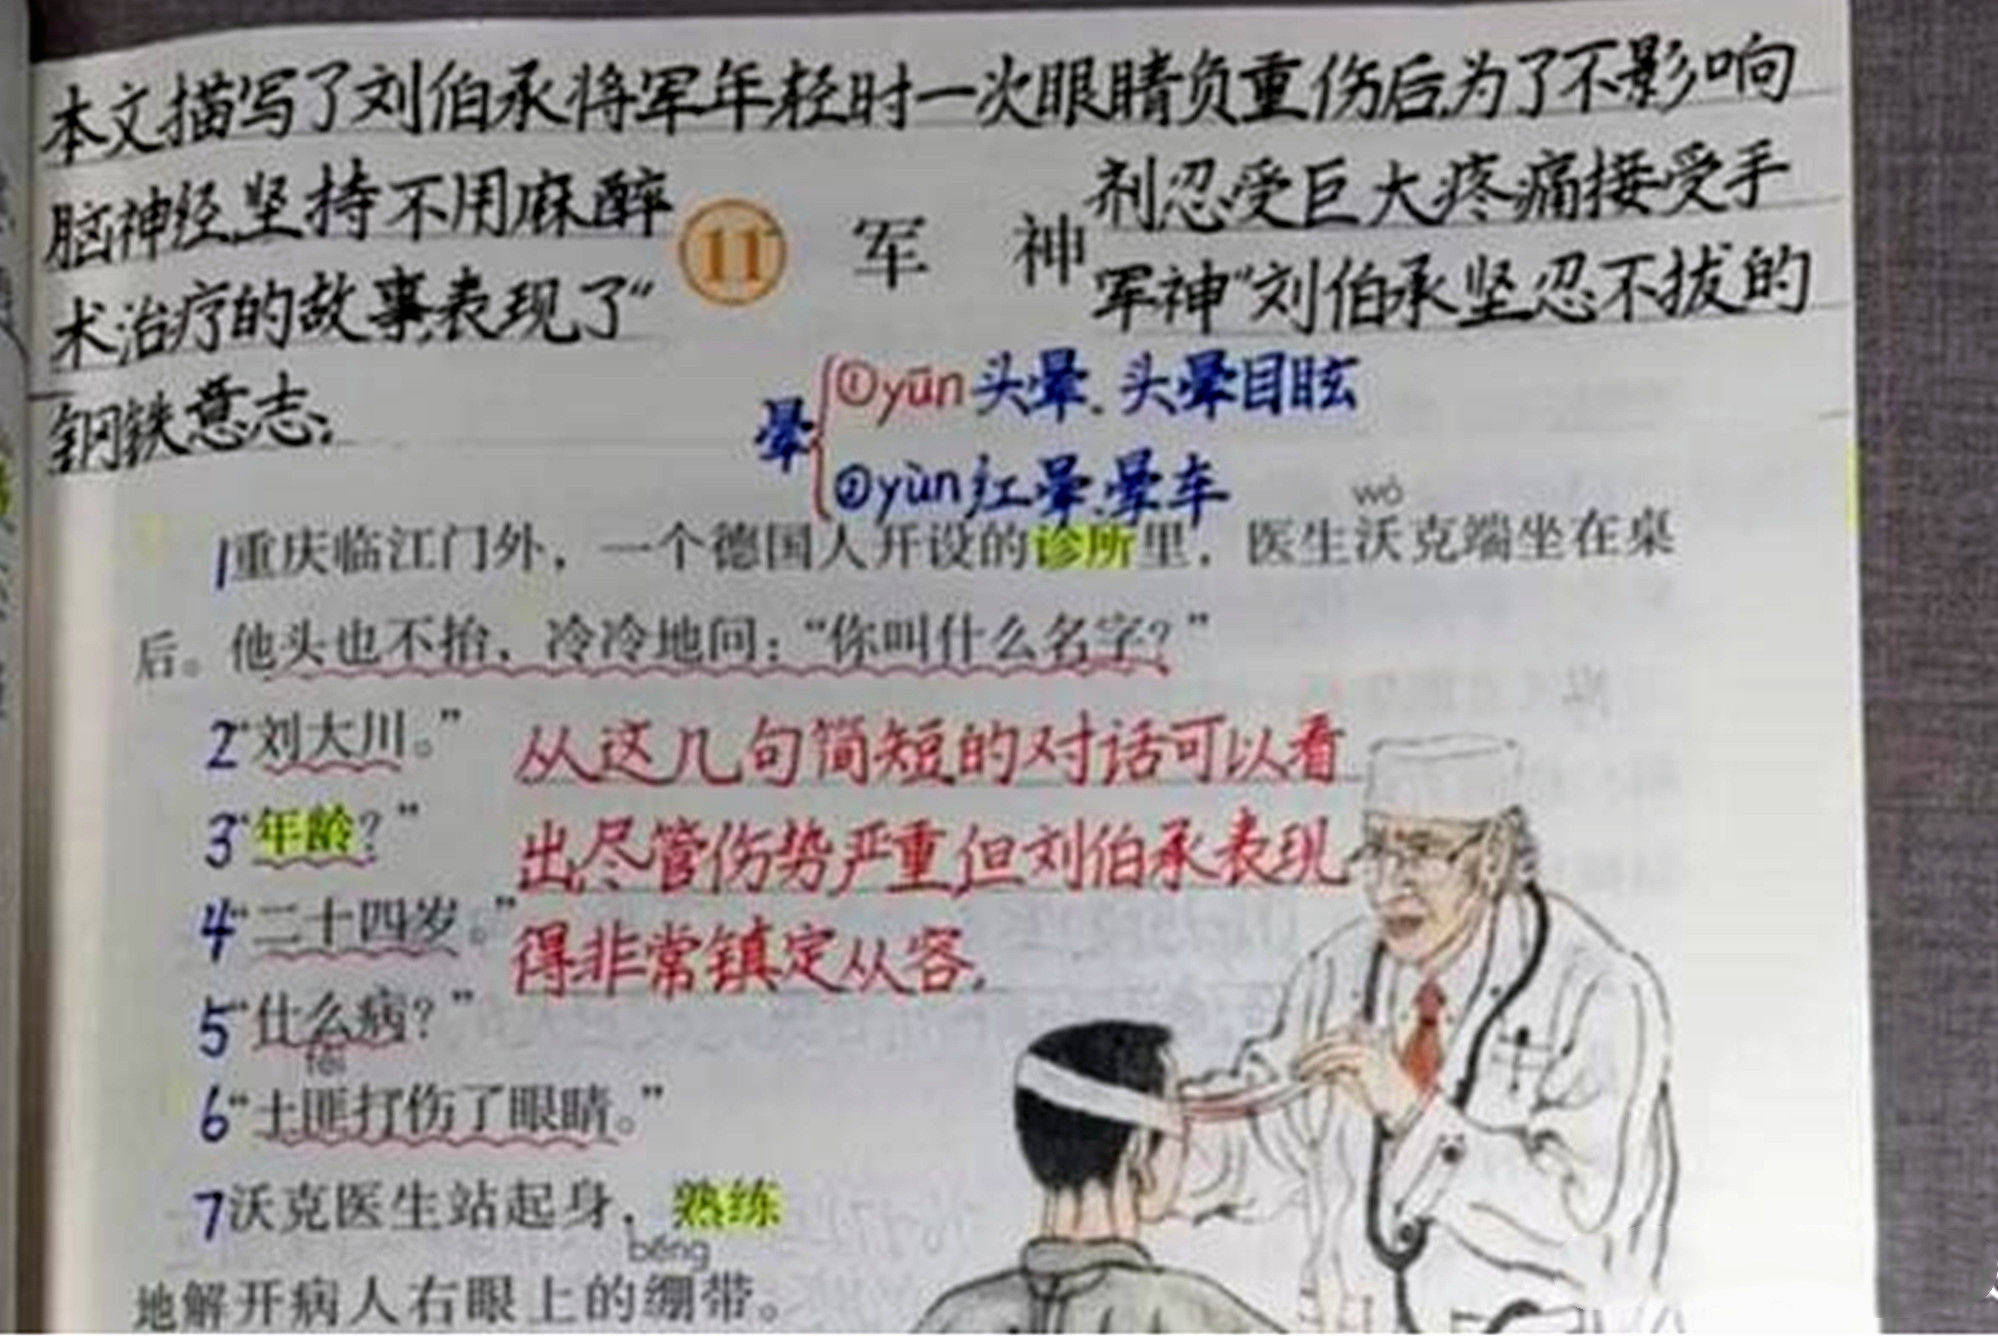 本文描写了刘伯承将军年轻时一次眼睛负重伤后,为了不影响
脑神经,坚持不用麻醉
剂忍受巨大疼痛接受手
术治疗的故事,表现了“
军神”刘伯承坚忍不拔的
钢铁意志。
11 军 神
晕
①yūn 头晕、头晕目眩
②yùn 红晕、晕车
wò
1重庆临江门外,一个德国人开设的诊所里,医生沃克端坐在桌
后。他头也不抬,冷冷地问:“你叫什么名字?”
2“刘大川。”
从这几句简短的对话可以看
3“年龄?”
出,尽管伤势严重,但刘伯承表现
4“二十四岁。”
得非常镇定从容。
5“什么病?”
fěi
6“土匪打伤了眼睛。”
7沃克医生站起身,熟练
bēng
地解开病人右眼上的绷带。